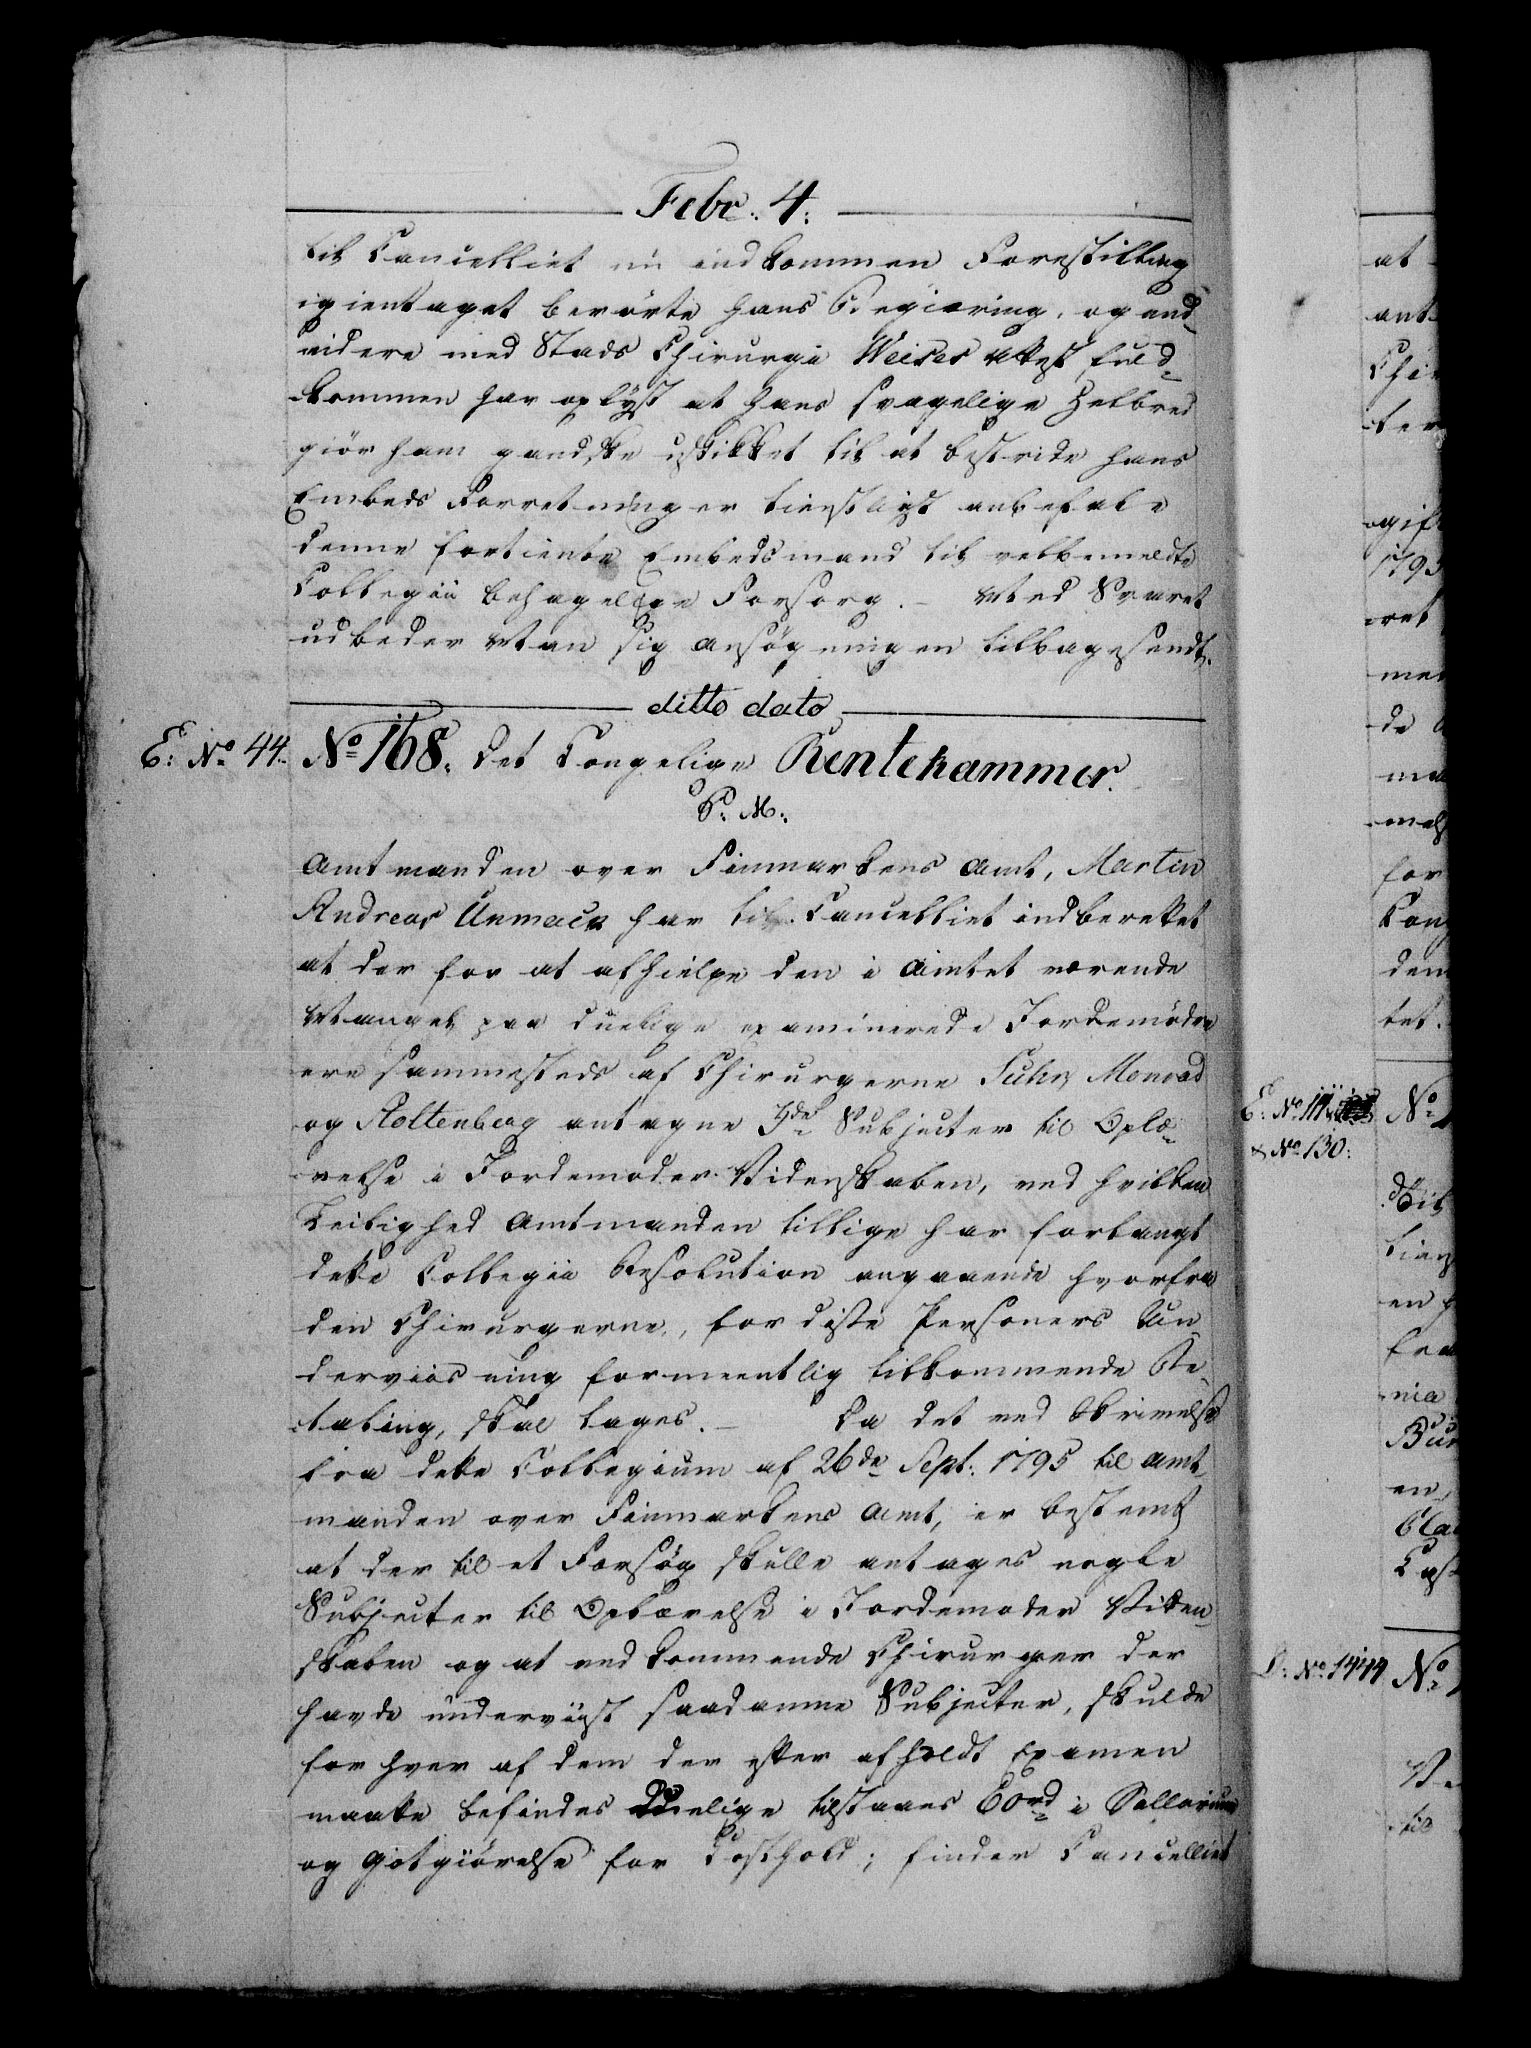 Febr. 4.
til Cancelliet nu indkommen Forestilling
igientaget berørte hans Begiæring, og end¬
videre med Stads Chirurgi Weises Attest fuld¬
kommen har oplyst at hans svagelige Helbred
giør ham gandske uskikket til at bestride hans
Embeds Forretninger tienstligst anbefale
denne fortiente Embedsmand til velbemeldte
Collegii behagelige Forsorg. – Med Svaret
udbeder Man sig Ansøgningen tilbagesendt.
ditto dato
E: No 44. No 168. Det Kongelige Rentekammer.
P. M.
Amtmanden over Finmarkens Amt, Martin
Andreas Unmack har til Cancelliet indberettet
at der for at afhielpe den i Amtet værende
Mangel paa duelige examinerede Jordemødre
ere sammesteds af Chirurgerne Suhr, Monrad
og Stoltenberg antagne 3de Subjecter til Oplæ¬
relse i Jordemoder Videnskaben, ved hvilken
Leilighed Amtmanden tillige har forlangt
dette Collegii Resolution angaaende hvorfra
den Chirurgerne, for disse Personers Un
derviisning formeentlig tilkommende Be¬
taling, skal tages. – Da det ved Skrivelse
fra dette Collegium af 26de Sept: 1795 til Amt¬
manden over Finmarkens Amt, er bestemt
at der til et Forsøg skulle antages nogle
Subjecter til Oplærelse i Jordemoder Viden¬
skaben og at vedkommende Chirurger der
havde underviist saadanne Subjecter, skulde
for hver af dem der efter afholdt Examen
maatte befindes duelige tilstaaes 60rd i Sallarium
og Godtgiørelse for Kosthold; finder Cancelliet
at
ant
Chir
ter
gift
1795
ret
me
de
ma
for
Cong
dem
tet.
E: No
& No 130.
No
til
en
fra
nia
Bur
en
No 1444 No
til